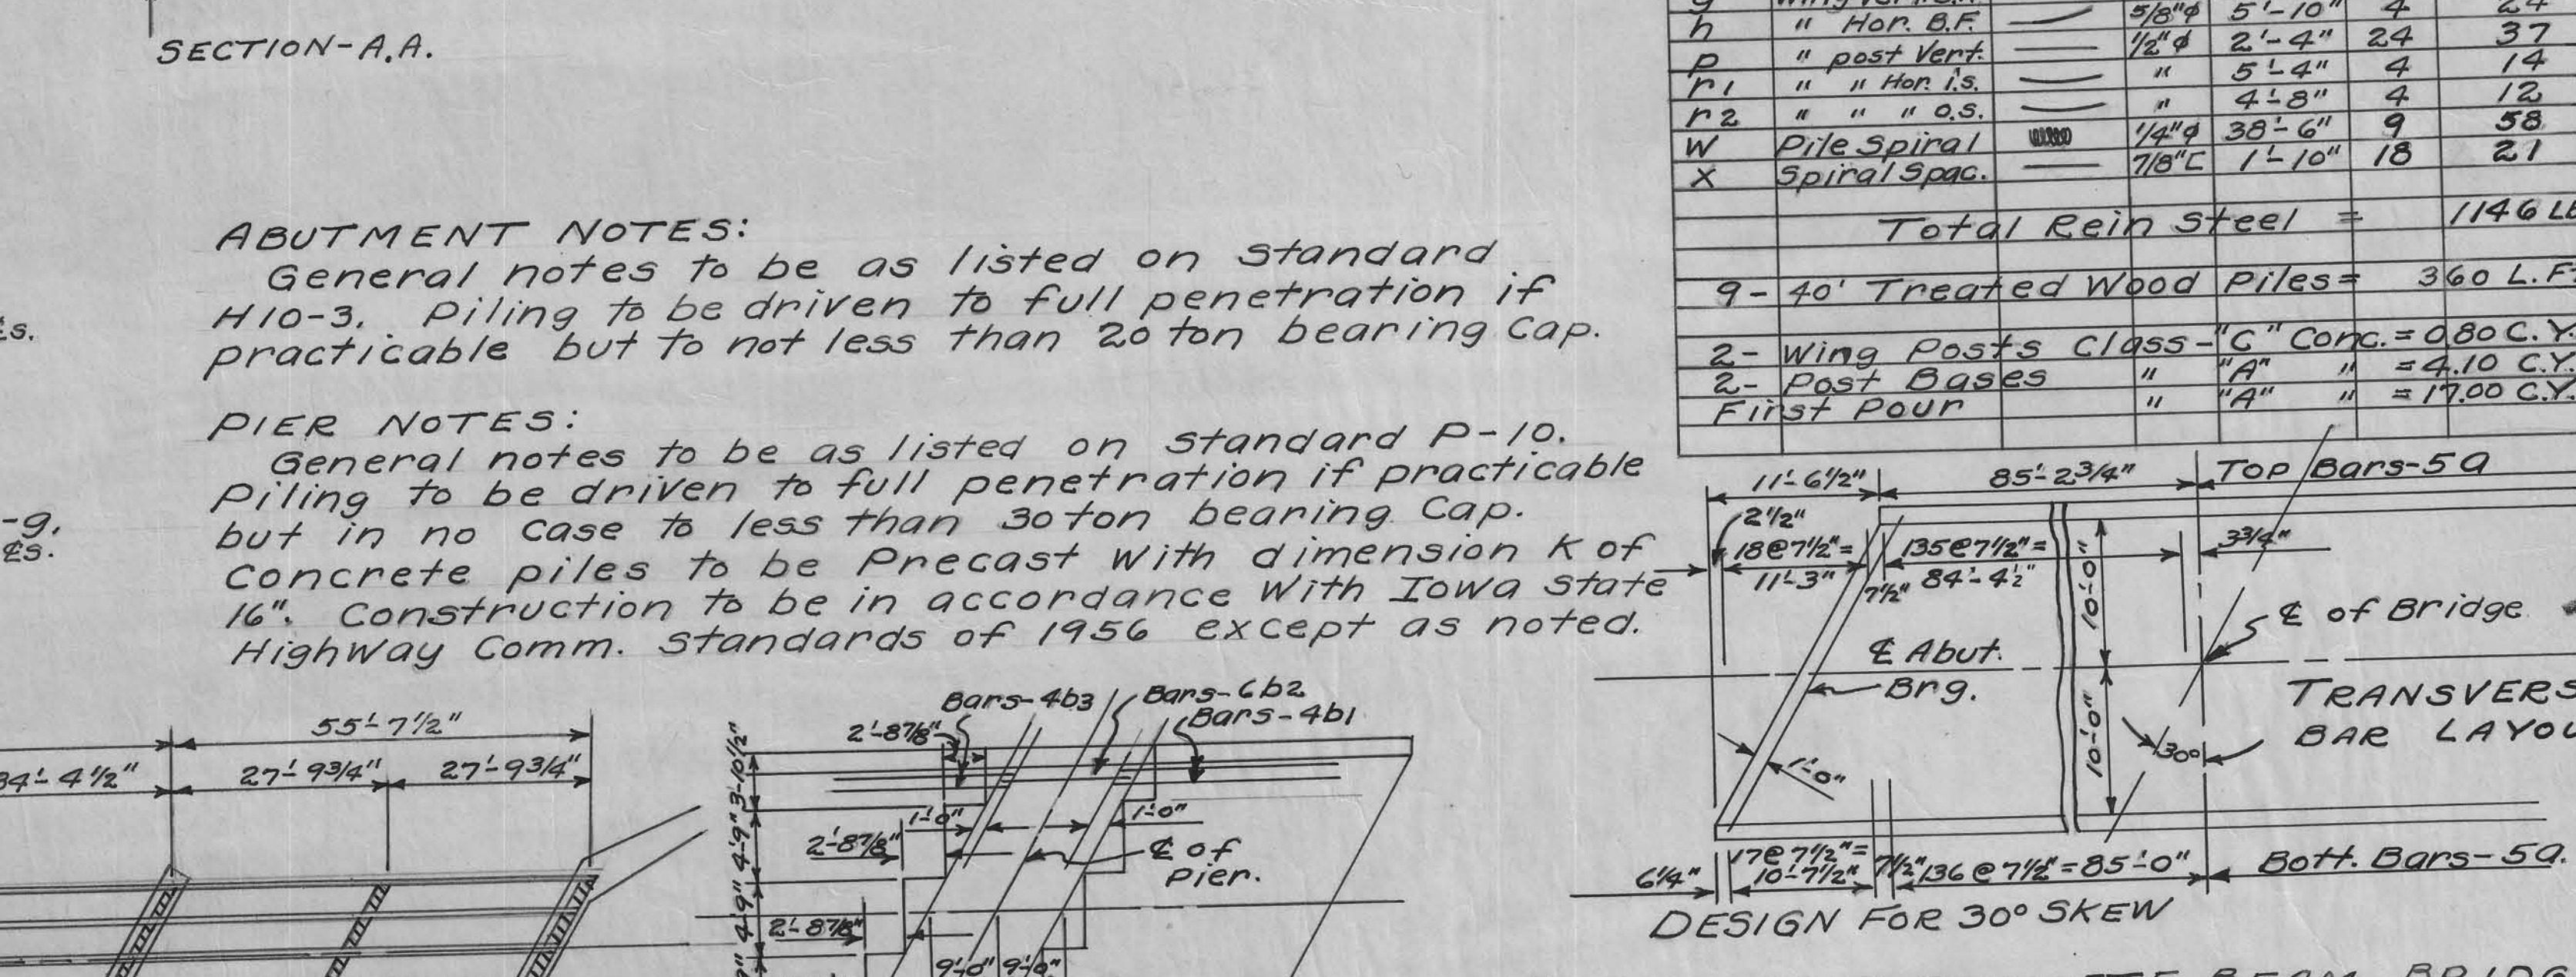 SECTION-A.A.
ABUTMENT NOTES:
General notes to be as listed on standard
H10-3. Piling to be driven to full penetration if
practicable but to not less than 20 ton bearing Cap.
PIER NOTES:
General notes to be as listed on standard P-10.
Piling to be driven to full penetration if practicable
but in no case to less than 30 ton bearing Cap.
Concrete piles to be Precast With dimension K of
16". Construction to be in accordance With Iowa State
HighWay Comm. Standards of 1956 except as noted.
h " Hor. B.F. 5/8"φ 5'-10" 4 24
p " post Vert. 1/2"φ 2'-4" 24 37
r1 " " Hor. i.s. " 5'-4" 4 14
r2 " " " o.s. " 4'-8" 4 12
W Pile Spiral 1/4"φ 38'-6" 9 58
X Spiral Spac. 7/8"C 1'-10" 18 21
Total Rein Steel = 1146
9- 40' Treated Wood Piles= 360 L.F.
2- Wing Posts Class-"C" Conc.= 0.80 C.Y.
2- Post Bases " "A" " =4.10 C.Y.
First Pour " "A" " =17.00 C.Y.
-g.
55'-7 1/2"
34'-4 1/2" 27'-9 3/4" 27'-9 3/4"
Bars-4b3 Bars-6b2
2'-8 7/8" Bars-4b1
3'-10 1/2"
1'-0" 1'-0"
4'-9"
2'-8 7/8" ℄ of
Pier.
4'-9"
2'-8 7/8"
9'-0" 9'-0"
11'-6 1/2" 85'-2 3/4" TOP Bars-5a
2 1/2"
18@7 1/2"= 135@7 1/2"= 3 3/4"
11'-3" 7 1/2" 84'-4 1/2"
10'-0"
℄ of Bridge
℄ Abut.
Brg.
TRANSVERS
BAR LAYOU
10'-0"
30°
1'-0"
17@7 1/2"= 7 1/2" 136@7 1/2"=85'-0" Bott. Bars-5a.
6 1/4" 10'-7 1/2"
DESIGN FOR 30° SKEW